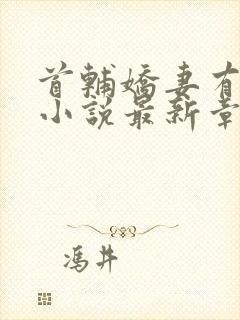 首輔嬌妻有
小說最新章
馮井